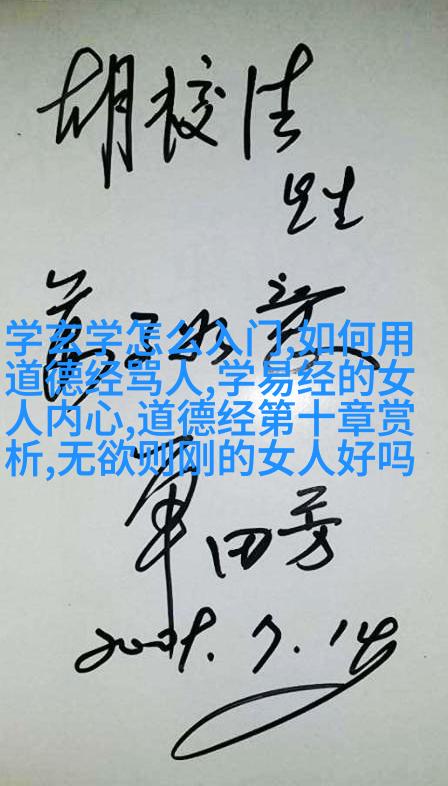 胡
先生
学玄学怎么入门,如何用
道德经骂人,学易经的女
人内心,道德经第十章赏
析,无欲则刚的女人好吗
单田芳